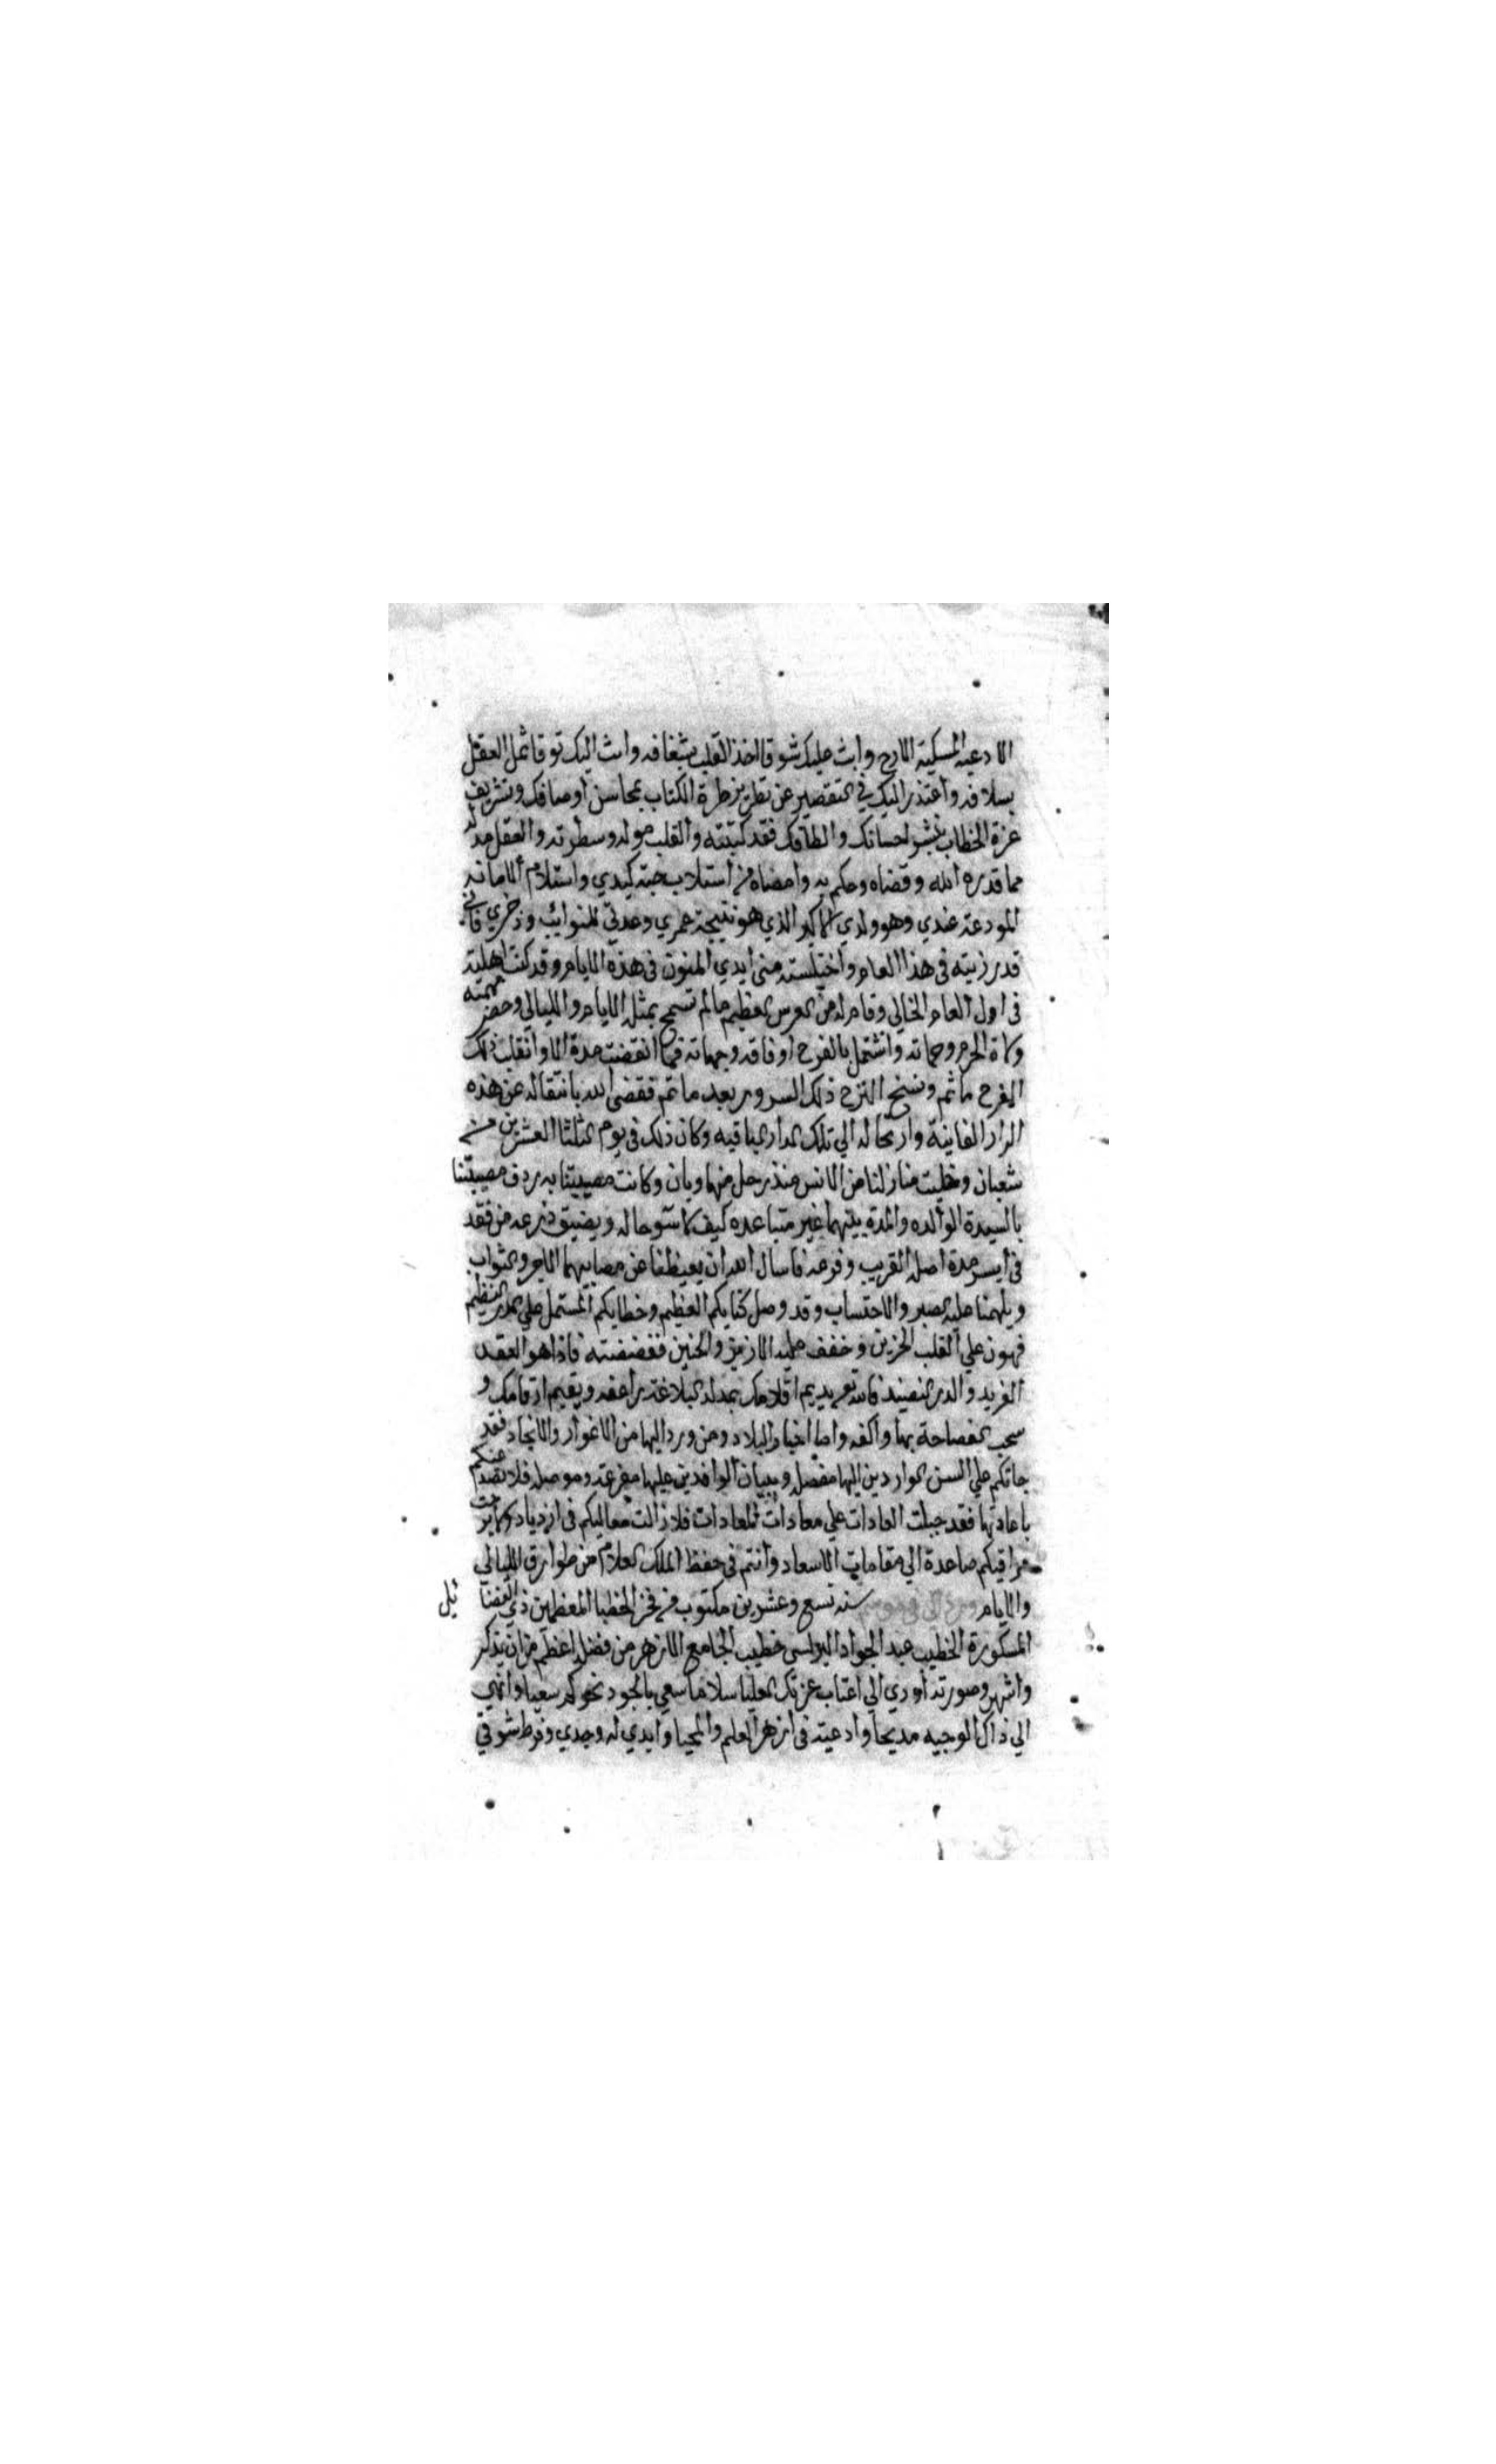 الادعيه المسكية الارج وابث عليك شوقا اخذ القلب بشغافه وابث اليك توقا ثمل العقل
بسلافه وأعتذر اليك في التقصير عن تطريز طرة الكتاب بمحاسن أوصافك وتشريف
غرة الخطاب بنشر احسانك والطافك فقد كتبته والقلب موله وسطرته والعقل مدله
مما قدره الله وقضاه وحكم به وامضاه من استلاب حبة كبدي واستلام الامانه
المودعة عندي وهو ولدي الاكبر الذي هو نتيجة عمري وعدتي للنوائب وذخري فاني
قد رزيته في هذا العام واختلسته مني أيدي المنون في هذه الايام وقد كنت اهلته
في اول العام الخالي وقام له من العرس العظيم ما لم تسمح بمثله الايام والليالي وحضر مهمته
وكاة الحرم وحماته واشتمل بالفرح اوفاقه وجهاته فما انقضت مدة الا وانقلب ذلك
الفرح مأتم ونسخ الترح ذلك السرور بعد ما تم فقضى الله بانتقاله عن هذه
الدار الفانية وارتحاله الي تلك الدار الباقيه وكان ذلك في يوم الثلثا العشرين من
شعبان وخليت منازلنا من الانس منذ رحل منها وبان وكانت مصيبتنا به ردف مصيبتنا
بالسيدة الوالده والمدة بينهما غير متباعده كيف لا تسو حاله ويضيق ذرعه من فقد
في ايسر مدة اصله القريب وفرعه فاسال الله ان يعيظنا عن مصابيهما الاجر والثواب
ويلهمنا عليه الصبر والاحتساب وقد وصل كتابكم العظيم وخطابكم المشتمل علي الدر النظيم
فهون علي القلب الحزين وخفف عليه الازيز والحنين ففضضته فاذا هو العقد
الفريد والدر النضيد فالله تعـ يديم اقلامك بمداد البلاغة راعفه ويقيم ارقامك و
سحب الفصاحة بها واكفه واما اخبار البلاد ومن ورد اليها من الاغوار والانجاد فقد
جاتكم علي السن الواردين اليها مفصله وببيان الوافدين عليها مفرعة وموصله فلا نصدعكم
باعادتها فقد جبلت العادات علي معادات المعادات فلا زالت معاليكم في ازدياد ولا برحت
مراقيكم صاعدة الي مقامات الاسعاد وانتم في حفظ الملك العلام من طوارق الليالي
والايام سنه تسع وعشرين مكتوب من فخر الخطبا المعظمين ذي الفضائل
المشكورة الخطيب عبد الجواد البرلسي خطيب الجامع الازهر من فضله اعظم من ان يذكر
واشهر وصورته اودي الي اعتاب عزتك العليا سلاما سعي بالجود نحوكم سعيا وانهي
الي ذاك الوجيه مديحا وادعية في ازهر العلم والمحيا وابدي له وجدي وفرط شوقي